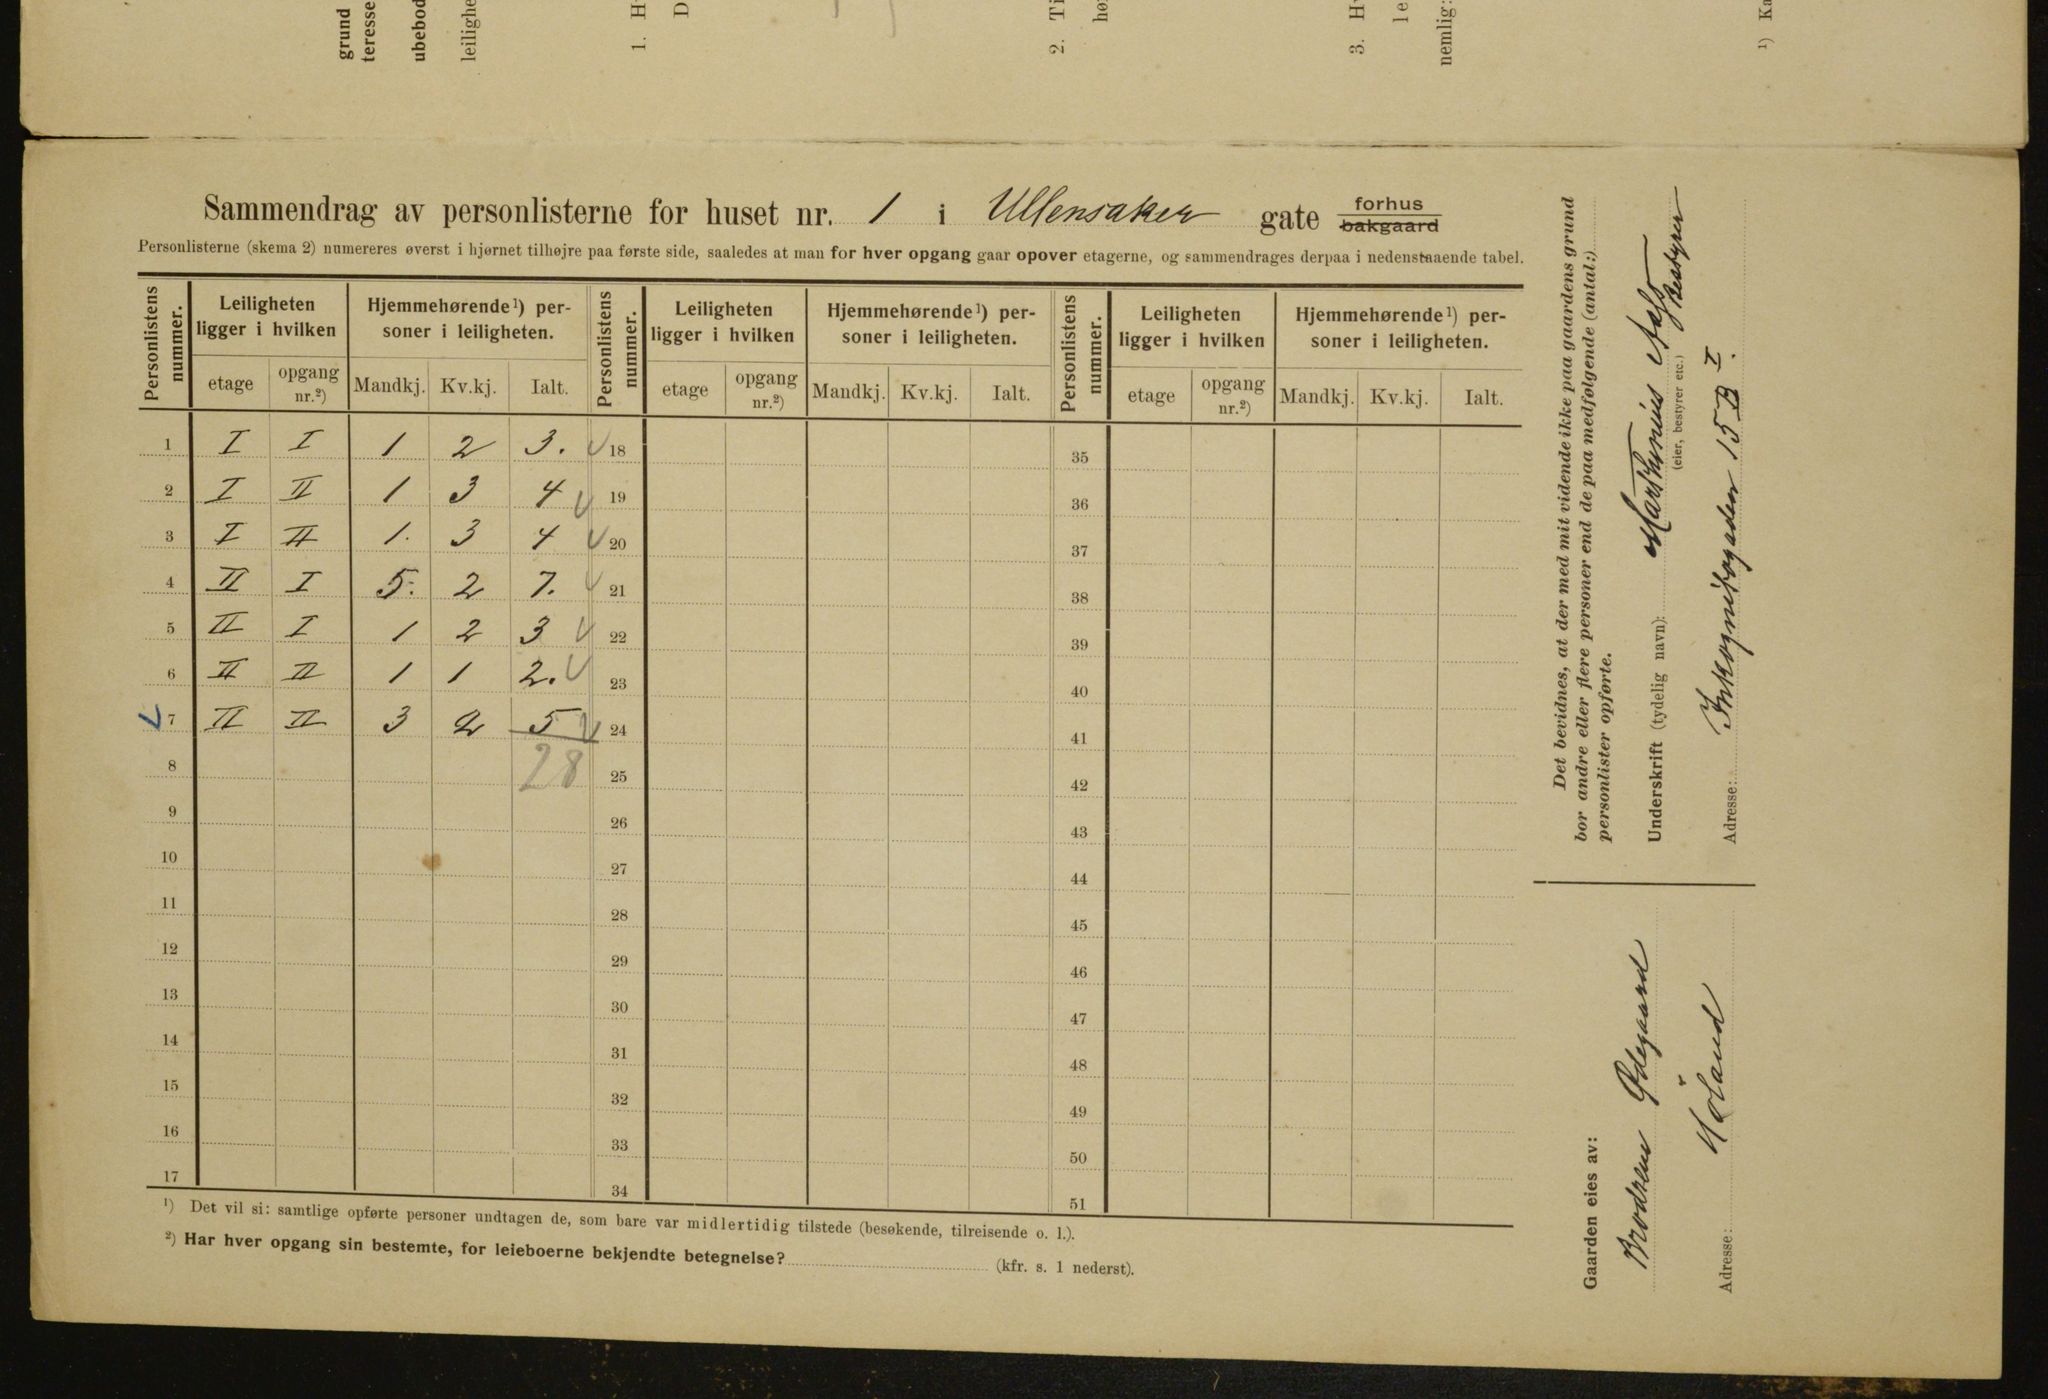 grund
teresse
ubebod
leilighe
1. H
D
2. Ti
hø
3. H
le
nemlig:
¹) Ka
Sammendrag av personlisterne for huset nr. 1 i Ullensaker gate forhus
bakgaard
Personlisterne (skema 2) numereres øverst i hjørnet tilhøjre paa første side, saaledes at man for hver opgang gaar opover etagerne, og sammendrages derpaa i nedenstaaende tabel.
Personlistens nummer. Leiligheten ligger i hvilken Hjemmehørende¹) personer i leiligheten. Personlistens nummer. Leiligheten ligger i hvilken Hjemmehørende¹) personer i leiligheten. Personlistens nummer. Leiligheten ligger i hvilken Hjemmehørende¹) personer i leiligheten.
etage opgang nr.²) Mandkj. Kv.kj. Ialt. etage opgang nr.²) Mandkj. Kv.kj. Ialt. etage opgang nr.²) Mandkj. Kv.kj. Ialt.
1 I I 1 2 3. 18 35
2 I II 1 3 4 19 36
3 I II 1. 3 4 20 37
4 II I 5. 2 7. 21 38
5 II I 1 2 3 22 39
6 II II 1 1 2. 23 40
7 II II 3 2 5 24 41
8 28 25 42
9 26 43
10 27 44
11 28 45
12 29 46
13 30 47
14 31 48
15 32 49
16 33 50
17 34 51
¹) Det vil si: samtlige opførte personer undtagen de, som bare var midlertidig tilstede (besøkende, tilreisende o. l.).
²) Har hver opgang sin bestemte, for leieboerne bekjendte betegnelse? (kfr. s. 1 nederst).
Det bevidnes, at der med mit vidende ikke paa gaardens grund
bor andre eller flere personer end de paa medfølgende (antal:)
personlister opførte.
Underskrift (tydelig navn):
Bestyrer
(eier, bestyrer etc.)
Adresse: Inkognitogaden 15 B I.
Gaarden eies av:
Brødrene Ødegaard
Adresse: Høland